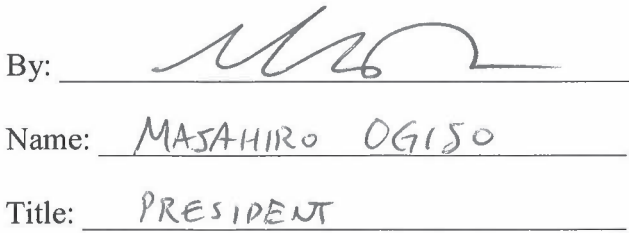 By:
Name: MASAHIRO OGISO
Title: PRESIDENT